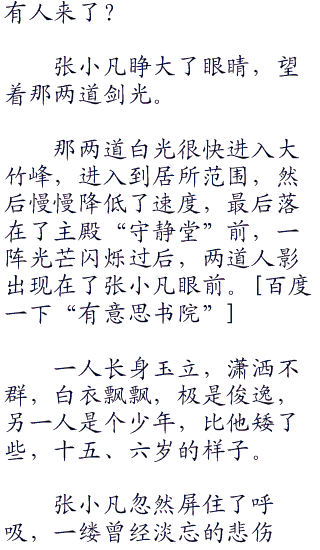 有人来了？
张小凡睁大了眼睛，望
着那两道剑光。
那两道白光很快进入大
竹峰，进入到居所范围，然
后慢慢降低了速度，最后落
在了主殿“守静堂”前，一
阵光芒闪烁过后，两道人影
出现在了张小凡眼前。[百度
一下“有意思书院”]
一人长身玉立，潇洒不
群，白衣飘飘，极是俊逸，
另一人是个少年，比他矮了
些，十五、六岁的样子。
张小凡忽然屏住了呼
吸，一缕曾经淡忘的悲伤